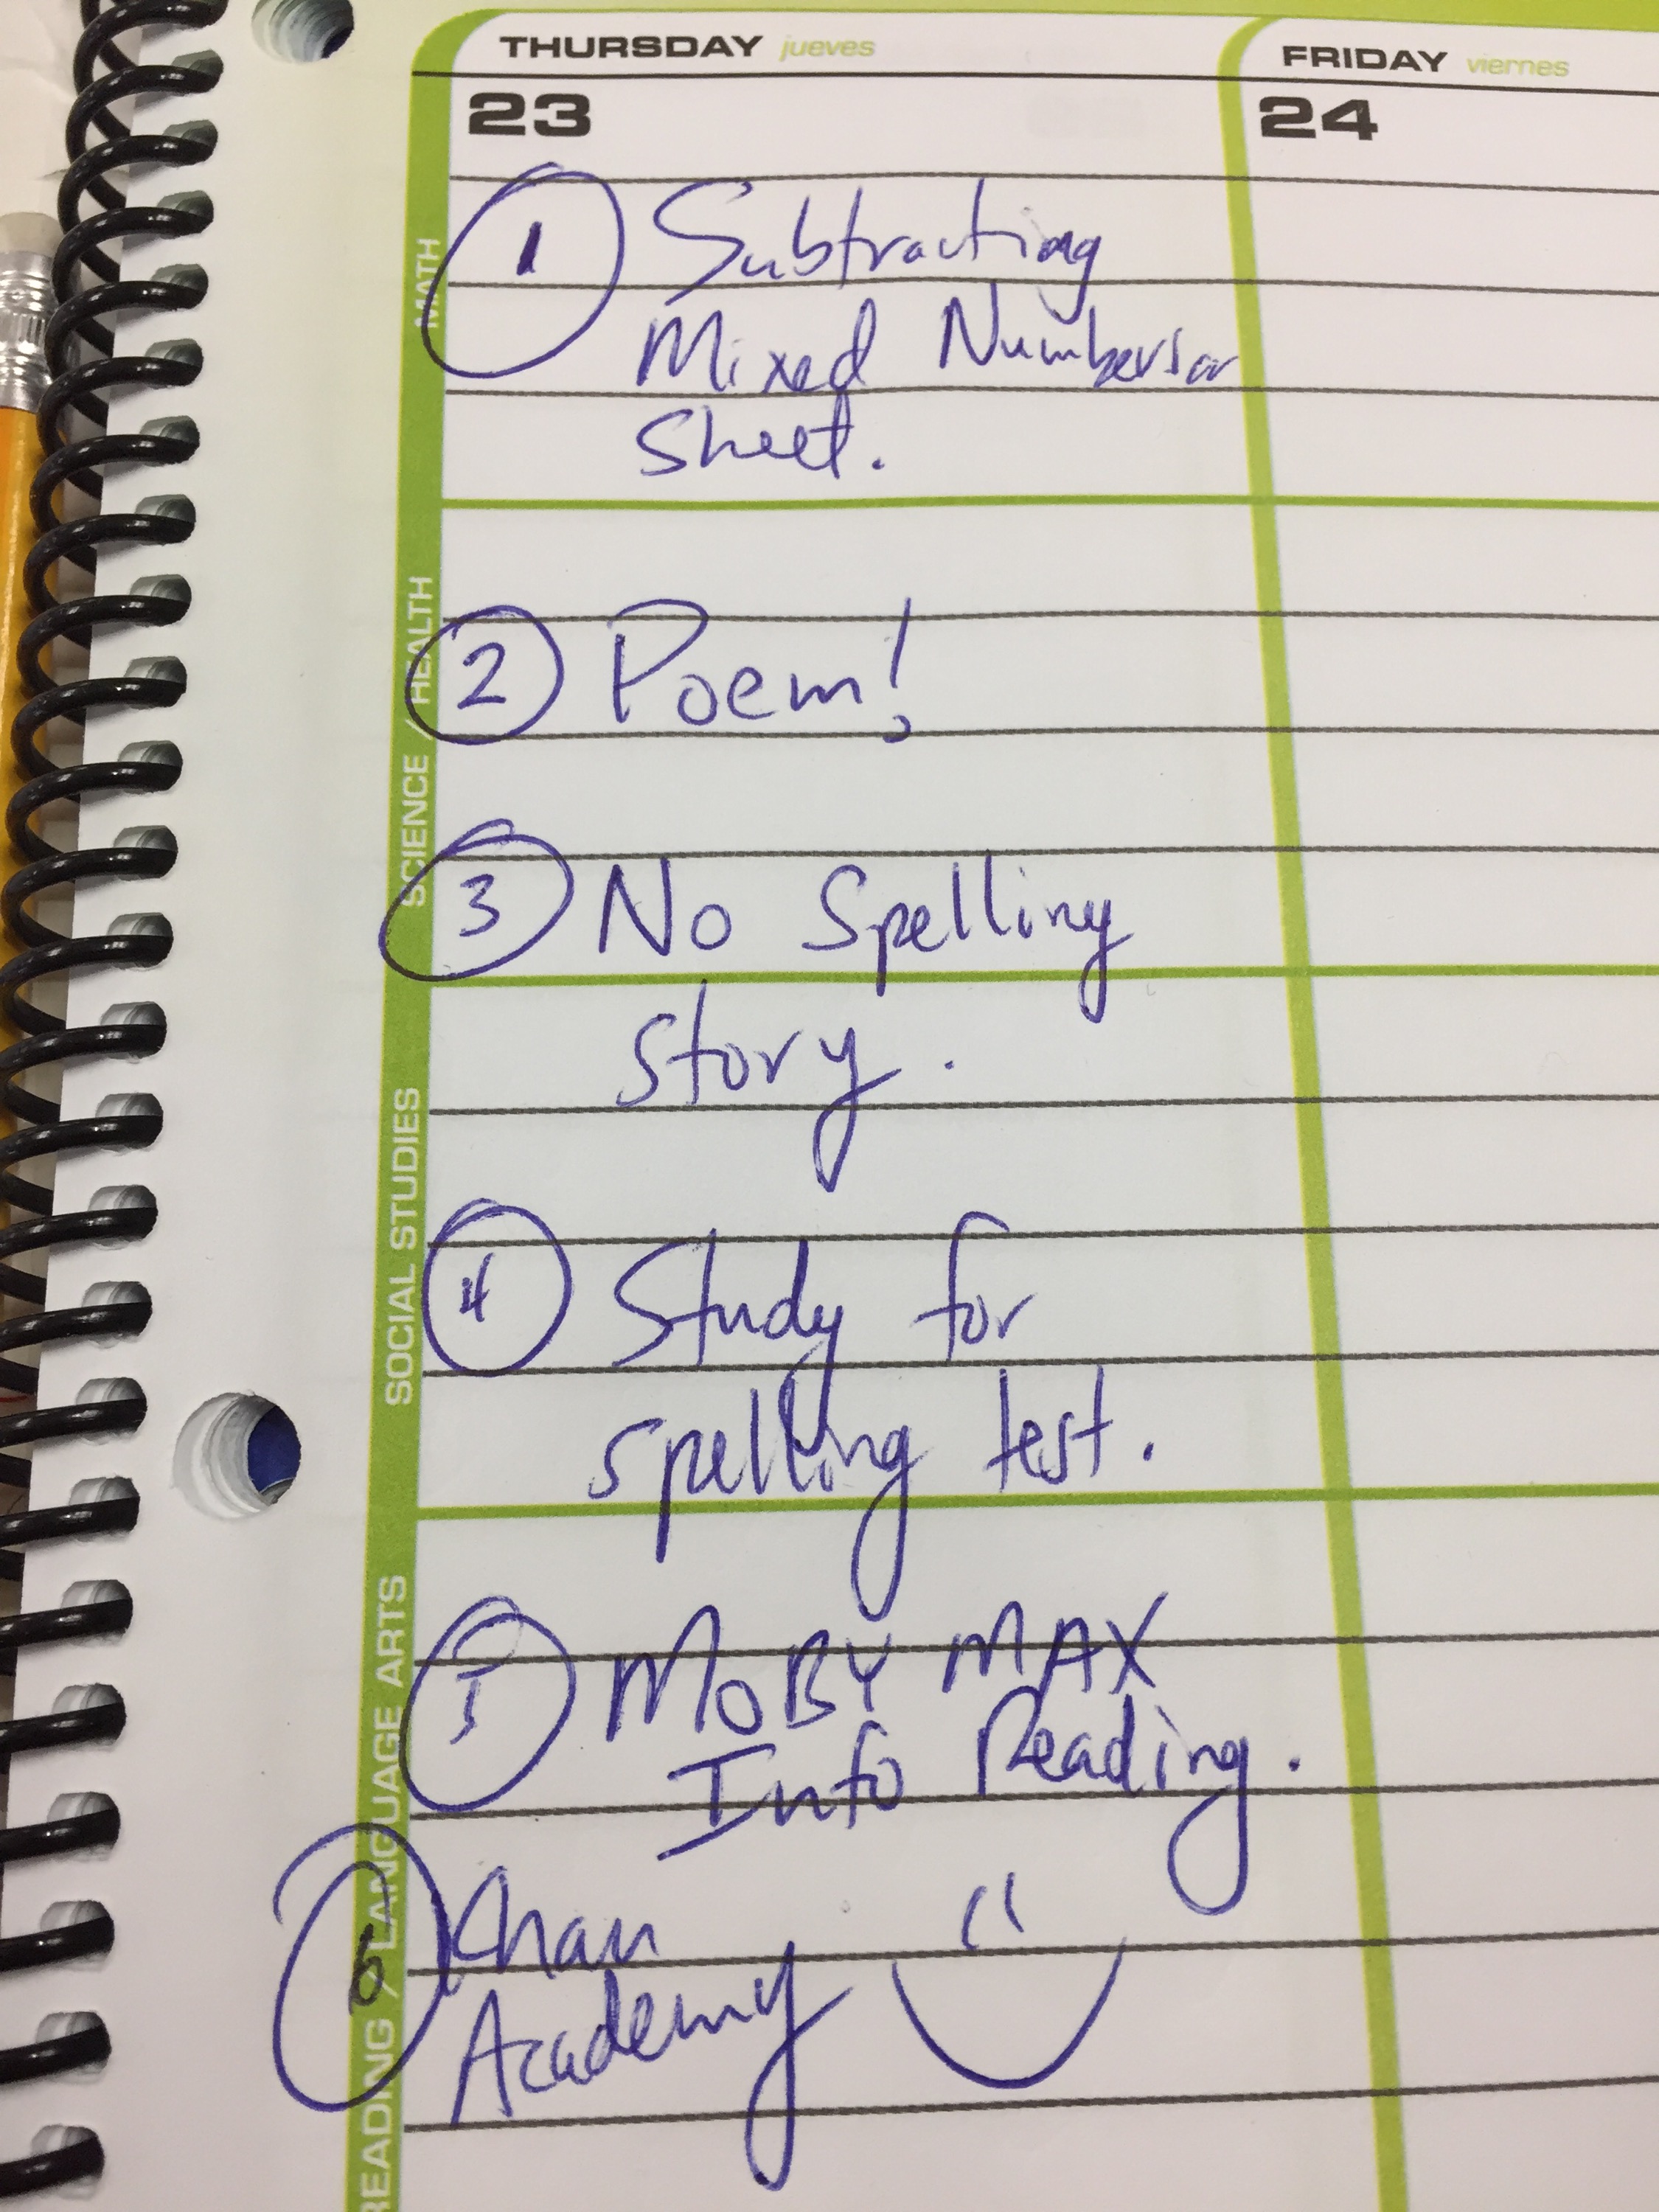 THURSDAY jueves
FRIDAY viernes
23
24
MATH
1 Subtracting
Mixed Numbers
Sheet.
SCIENCE / HEALTH
2 Poem!
3 No Spelling
story.
SOCIAL STUDIES
4 Study for
spelling test.
READING / LANGUAGE ARTS
5 MOBY MAX
Info Reading.
6 Khan
Academy